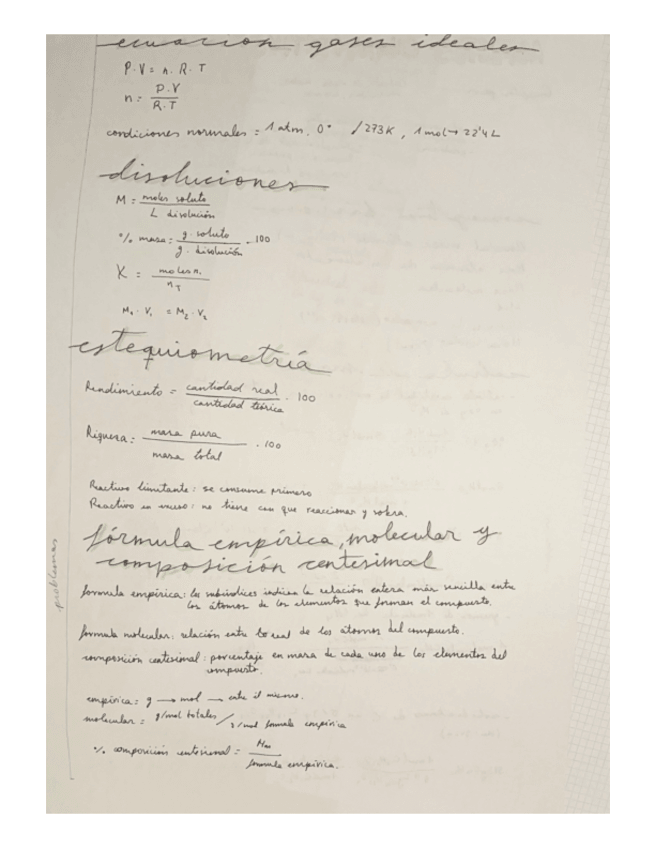 ecuación gases ideales
P.V = n. R. T
n = P.V / R.T
condiciones normales = 1 atm. 0° / 273K, 1 mol → 22'4 L
disoluciones
M = moles soluto / L disolución
% masa = g. soluto / g. disolución . 100
X = moles n. / n_T
M₁. V₁ = M₂. V₂
estequiometría
Rendimiento = cantidad real / cantidad teórica . 100
Riqueza = masa pura / masa total . 100
Reactivo limitante: se consume primero
Reactivo en exceso: no tiene con que reaccionar y sobra.
problemas
fórmula empírica, molecular y
composición centesimal
formula empírica: los subíndices indican la relación entera más sencilla entre
los átomos de los elementos que forman el compuesto.
formula molecular: relación entre lo real de los átomos del compuesto.
composición centesimal: porcentaje en masa de cada uno de los elementos del
compuesto.
empírica = g → mol → entre el mismo.
molecular = g/mol totales / g/mol formula empírica
% composición centesimal = / formula empírica.